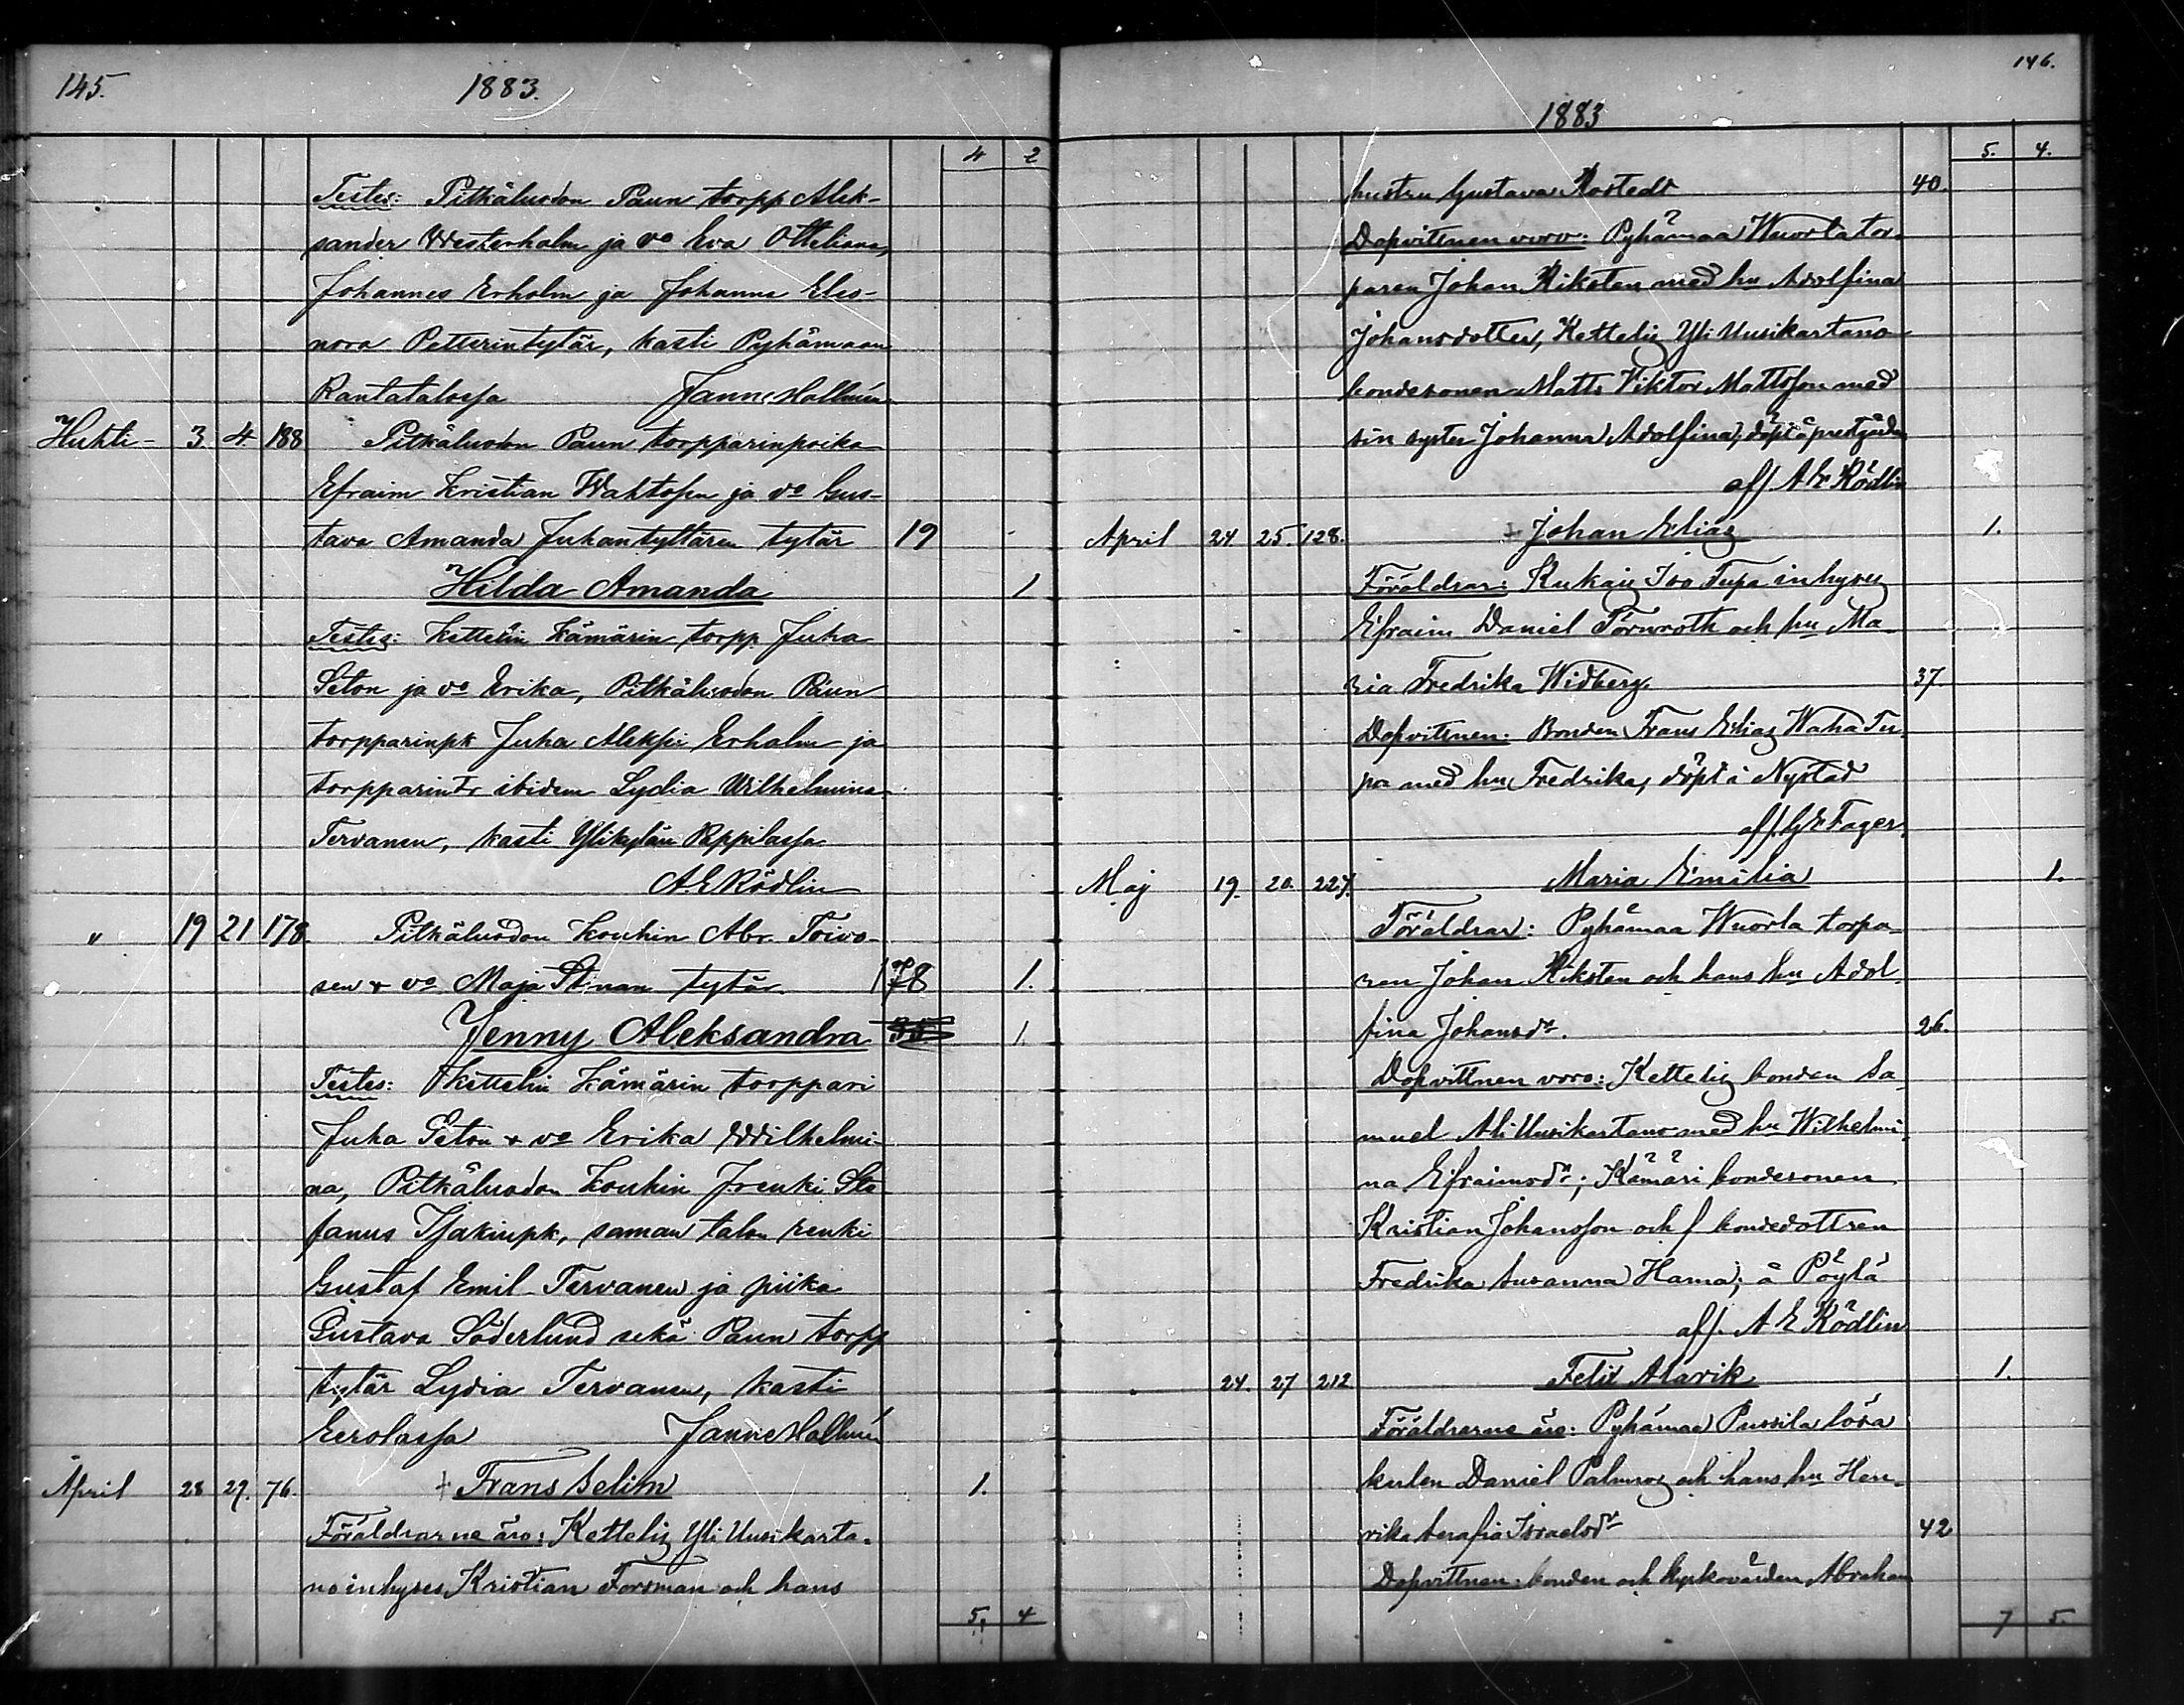 145.
1883.
4 2
Testes: Pitkäluodon Paun torpp. Alek-
sander Westerholm ja vo Eva Otteliana,
Johannes Erholm ja Johanna Eleo-
nora Petterintytär, kasti Pyhämaan
Rantatalossa Janne Hallmén
Huhti- 3. 4. 188 Pitkäluodon Paun torpparinpoika
Efraim Kristian Wahtosen ja vo Gus-
tava Amanda Juhantyttären tytär 19
Hilda Amanda 1
Testes: Kettelin Kämärin torpp. Juha
Seton ja vo Erika, Pitkäluodon Paun
torpparinpk Juha Aleksi Erholm ja
torpparintr ibidem Lydia Wilhelmina
Tervanen, kasti Ylikylän Pappilassa
A. E. Rödlin
" 19 21 178. Pitkäluodon Kouhin Abr. Toivo-
sen & vo Maja Stinan tytär 178 1.
Jenny Aleksandra 35 1.
Testes: Kettelin Kämärin torppari
Juha Seton & vo Erika Wilhelmi-
na, Pitkäluodon Kouhin J. renki Ste-
fanus Isakinpk, saman talon renki
Gustaf Emil Tervanen ja piika
Gustava Söderlund sekä Paun torpp
tytär Lydia Tervanen, kasti
Eerolassa Janne Hallmén
April 28 29. 76. + Frans Selim 1.
Föräldrarne äro: Kettelig Yli Uusikarta-
no inhyses Kristian Forsman och hans
5. 4
146.
1883
5. 4.
hustru Gustava Rostedt 40.
Dopvittnen voro: Pyhämaa Wuorla tor-
paren Johan Riksten med hu Adolfina
Johansdotter, Kettelig Yli Uusikartano
bondesonen Matts Viktor Mattsson med
sin syster Johanna Adolfina; döpt å prestgården
af A E Rödlin
April 24. 25. 128. + Johan Elias 1.
Föräldrar: Kukais Iso Tupa inhyses
Efraim Daniel Törnroth och hu Ma-
ria Fredrika Widberg. 37.
Dopvittnen: Bonden Frans Elias Waha Tu-
pa med hu Fredrika, döpt i Nystad
af G E Fager.
Maj 19. 20. 227. Maria Emilia 1.
Föräldrar: Pyhämaa Wuorla torpa-
ren Johan Riksten och hans hu Adol-
fina Johansdr. 26.
Dopvittnen voro: Kettelig bonden Sa-
muel Ali Uusikartano med hu Wilhelmi-
na Efraimsdr; Kämäri bondesonen
Kristian Johansson och f bondedottren
Fredrika Susanna Hama; å Pöytä
af. A E Rödlin
24. 27 212. Felix Alarik 1.
Föräldrarne äro: Pyhämaa Pussila lösa
karlen Daniel Palmros och hans hu Hen-
rika Serafia Israelsdr 42
Dopvittnen: bonden och kyrkovärden Abraham
7 5.